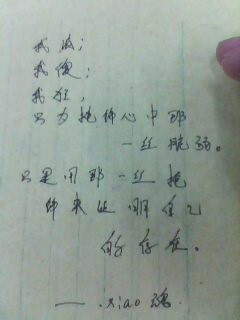 我傲；
我傻；
我狂，
只为掩饰心中那
一丝脆弱。
只是用那一丝掩
饰来证明自己
的存在。
—— xiao魂